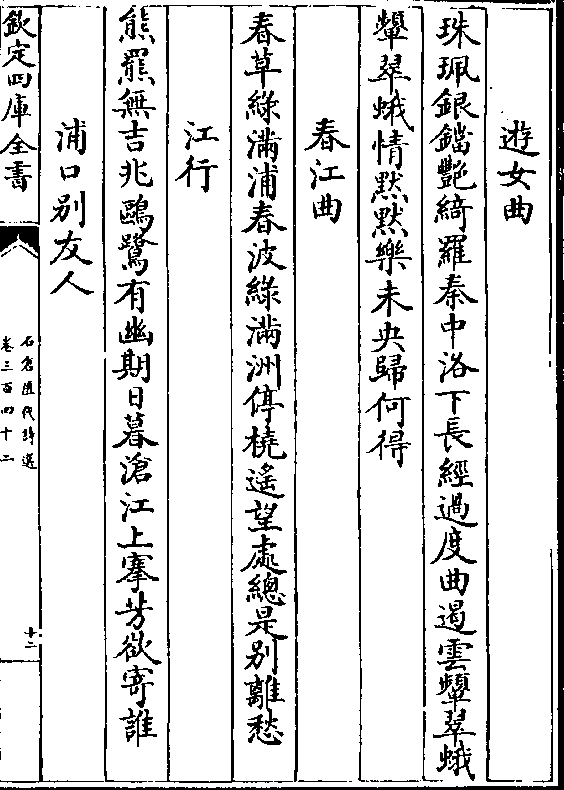 遊女曲
珠珮銀鐺艷綺羅秦中洛下長經過度曲遏雲顰翠蛾
顰翠蛾情黙黙樂未央歸何得
春江曲
春草綠滿浦春波綠滿洲停橈遙望處總是别離愁
江行
熊羆無吉兆鷗鷺有幽期日暮滄江上搴芳欲寄誰
浦口别友人
欽定四庫全書
石倉歴代詩選
卷三百四十二
十二